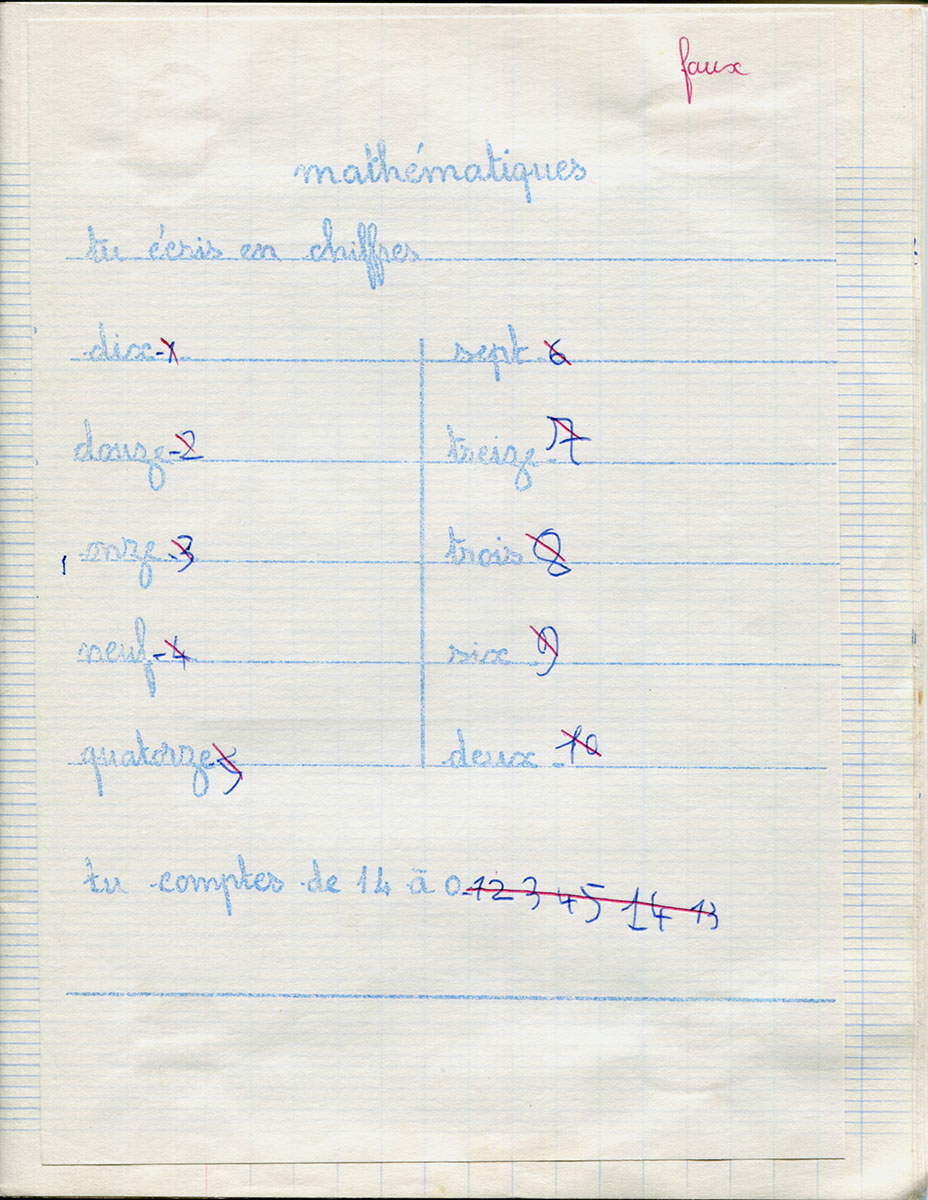 faux
mathématiques
tu écris en chiffres
dix 1
sept 6
douze 2
treize 7
onze 3
trois 8
neuf 4
six 9
quatorze 5
deux 10
tu comptes de 14 à 0 1 2 3 4 5 14 13